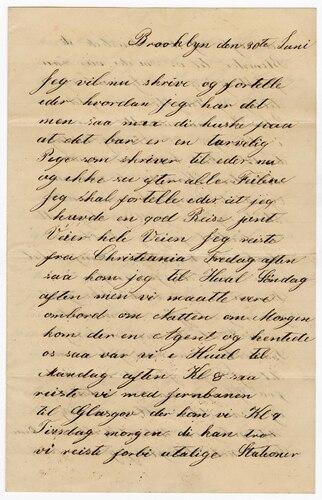 Brooklyn den 30te Juni
Jeg vil nu skrive og fortelle
eder hvordan jeg har det
men saa maa di huske paa
at det bar er en tarvelig
Pege som skriver til eder nu
og ikke se efter alle Feilene
Jeg skal fortelle eder at jeg
havde en god Reise pent
Veier hele Veien Jeg reiste
fra Christiania Fredag aften
saa kom jeg til Hual Søndag
aften men vi maatte vere
ombord om Natten om Morgen
kom der en Agent og hentede
os saa var vi i Huul til
Mandag aften Kl 8 saa
reiste vi med jernbanen
til Glasgov der kom vi Kl 4
Tirsdag morgen di kan tro
vi reiste forbi utalige Stationer